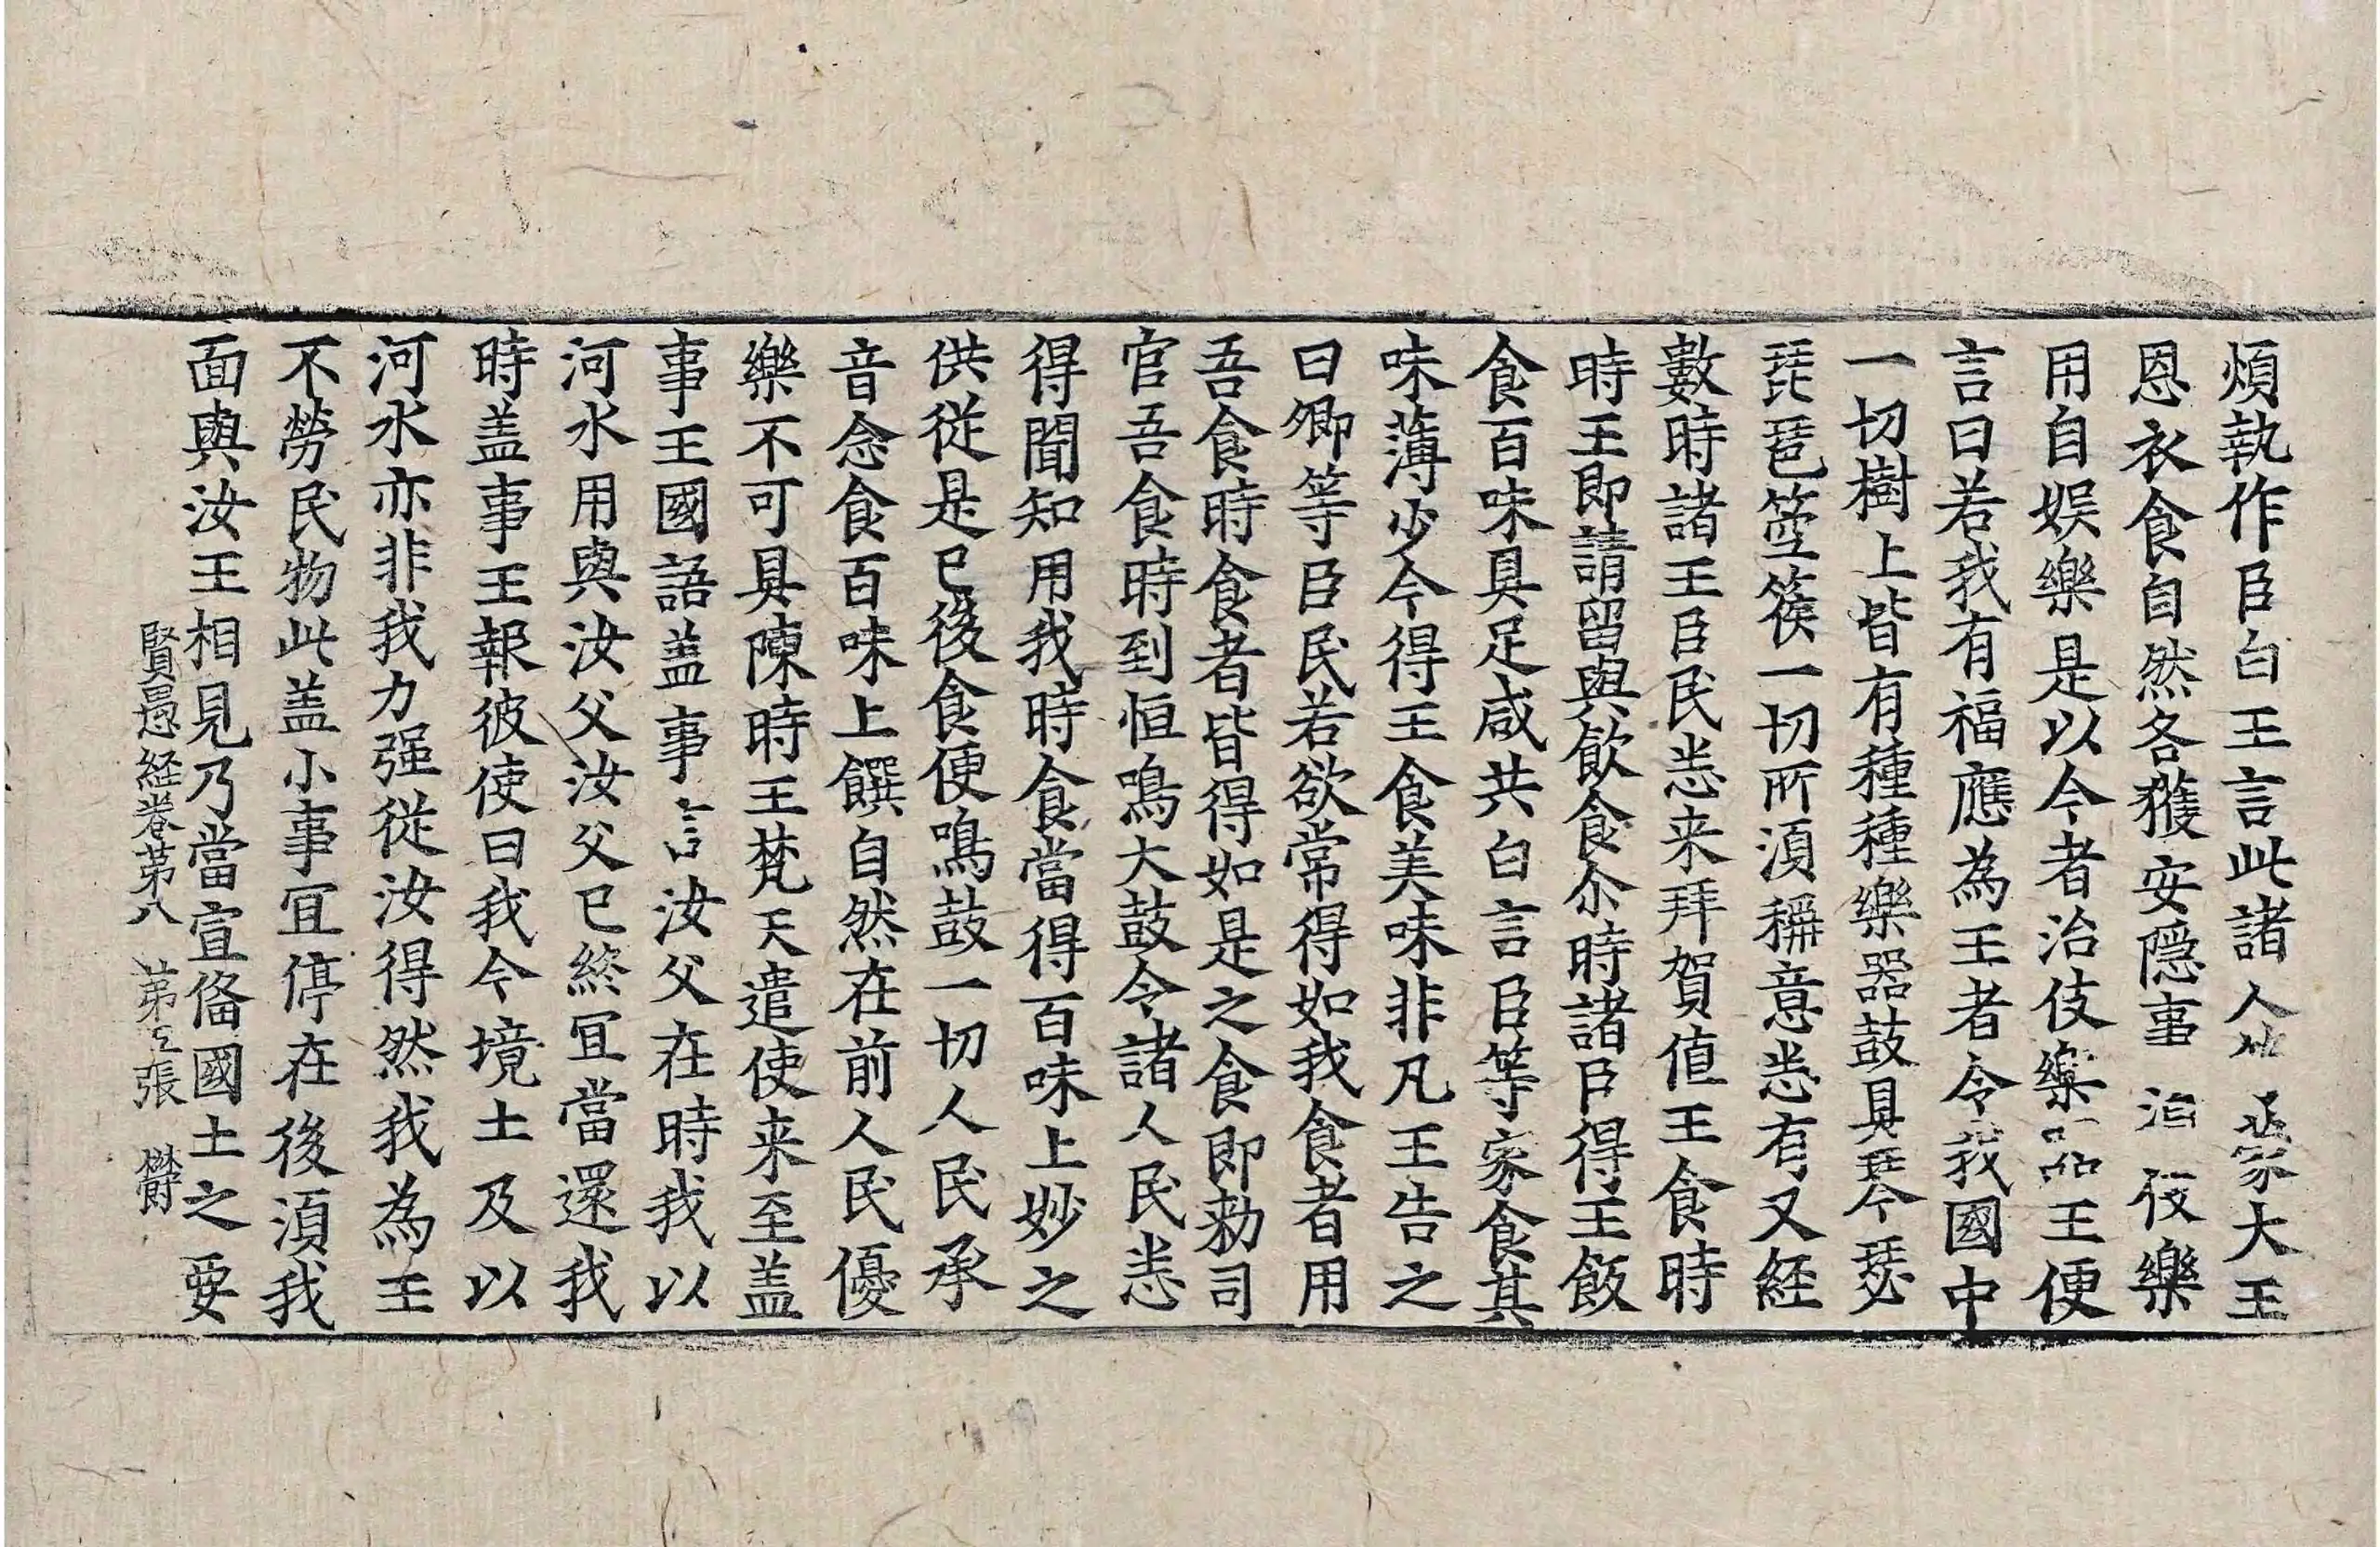 煩執作臣白王言此諸人蒙大王
恩衣食自然各獲安隱事治伎樂
用自娱樂是以今者治伎樂王便
言曰若我有福應為王者令我國中
一切樹上皆有種種樂器鼓具琴瑟
琵琶箜篌一切所湏稱意悉有又經
數時諸王臣民悉来拜賀值王食時
時王即請留與飲食尒時諸臣得王飯
食百味具足咸共白言臣等家食其
味薄少今得王食美味非凡王告之
曰卿等臣民若欲常得如我食者用
吾食時食者皆得如是之食即勑司
官吾食時到恒鳴大鼓令諸人民悉
得聞知用我時食當得百味上妙之
供従是已後食便鳴鼓一切人民承
音念食百味上饌自然在前人民優
樂不可具陳時王梵天遣使来至盖
事王國語盖事言汝父在時我以
河水用與汝父汝父已終冝當還我
時盖事王報彼使曰我今境土及以
河水亦非我力强従汝得然我為王
不勞民物此盖小事冝停在後湏我
面與汝王相見乃當宣俻國土之要
賢愚経卷苐八 苐張 欝